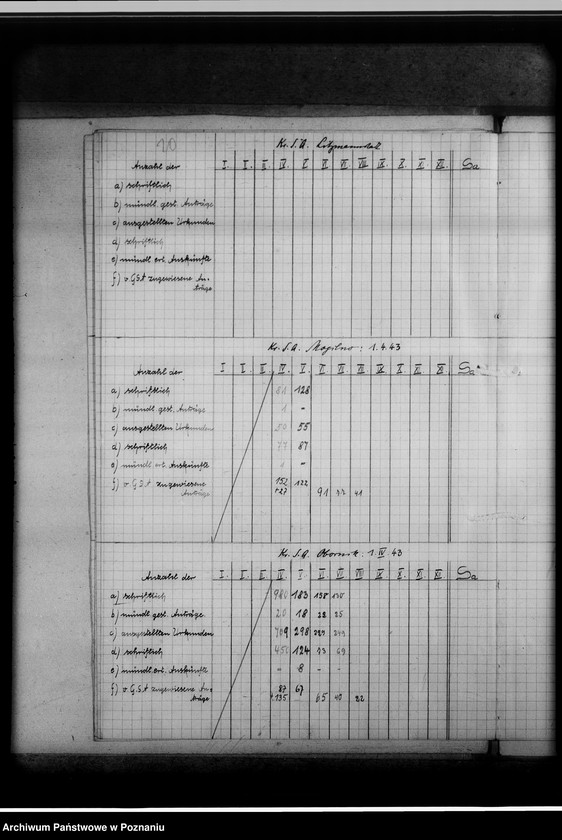 20
Kr. S. A. Litzmannstadt
Anzahl der I. I. II. IV. V. VI. VII. VIII. IX. X. XI. XII. Sa
a) schriftlich
b) mündl. gest. Anträge
c) ausgestellten Urkunden
d) schriftlich
e) mündl. ert. Auskünfte
f) v. G.S.A zugewiesene An-
träge
Kr. S. A. Mogilno: 1.4.43
Anzahl der I. I. II. IV. V. VI. VII. VIII. IX. X. XI. XII. Sa
a) schriftlich 81 128
b) mündl. gest. Anträge 1 -
c) ausgestellten Urkunden 50 55
d) schriftlich 77 87
e) mündl. ert. Auskünfte -
f) v. G.S.A zugewiesene 152 122
Anträge +27 91 41
Kr. S. A. Obornik: 1.IV.43
Anzahl der Sa
a) schriftlich 980 183 138
b) mündl. gest. Anträge 20 18 22 25
c) ausgestellten Urkunden 709 298
d) schriftlich 450 124 73 69
e) mündl. ert. Auskünfte - 8 - -
f) v. G.S.A zugewiesene An- 87 67
träge +135 65 22
Archiwum Państwowe w Poznaniu